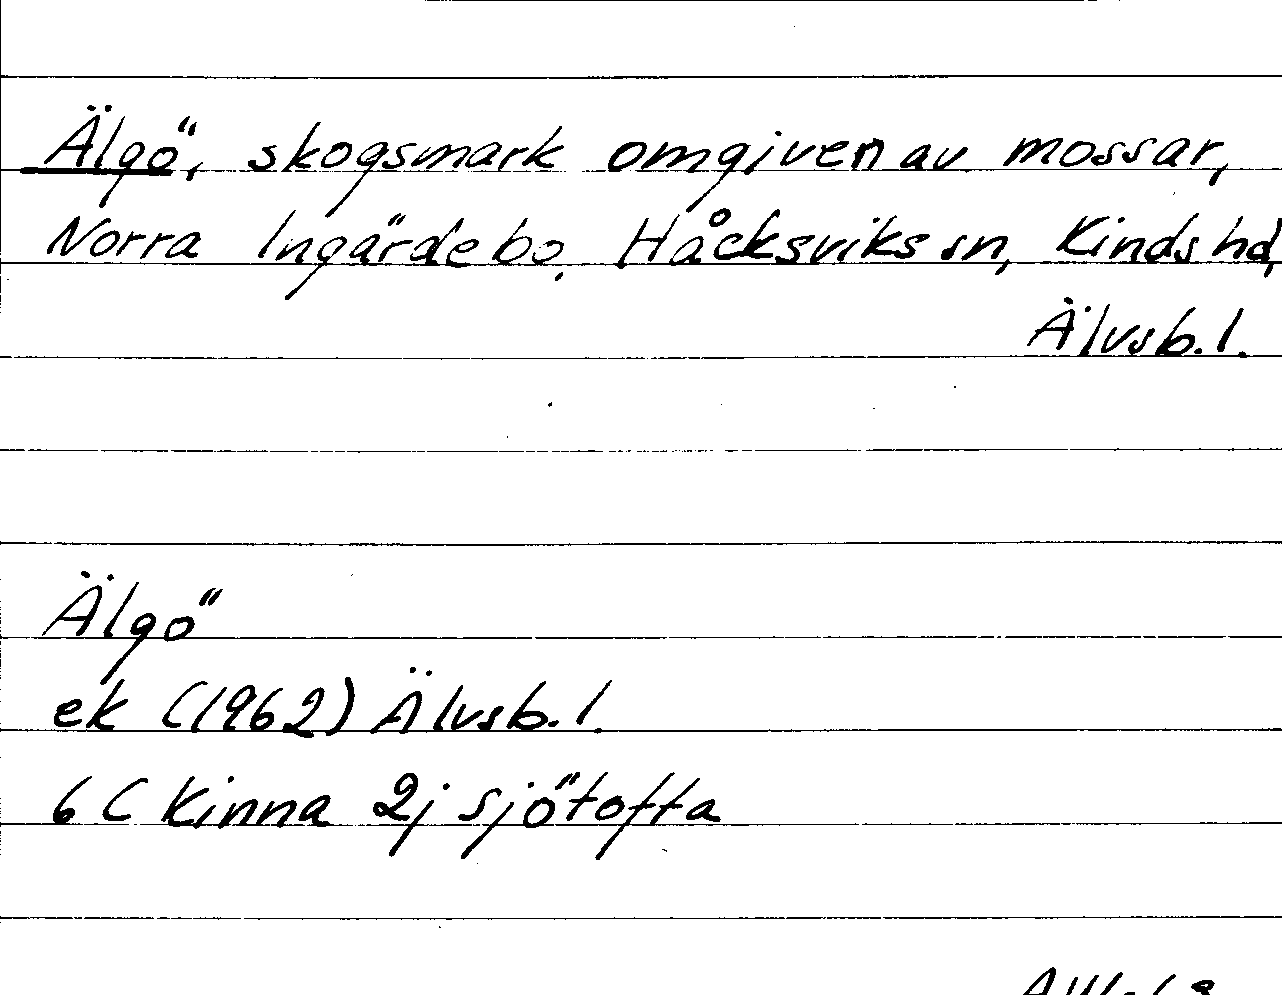 Älgö, skogsmark omgiven av mossar,
Norra Ingärdebo, Håcksviks sn, Kinds hd,
Älvsb. l.
Älgö
ek (1962) Älvsb. l.
6 C Kinna 2j Sjötofta